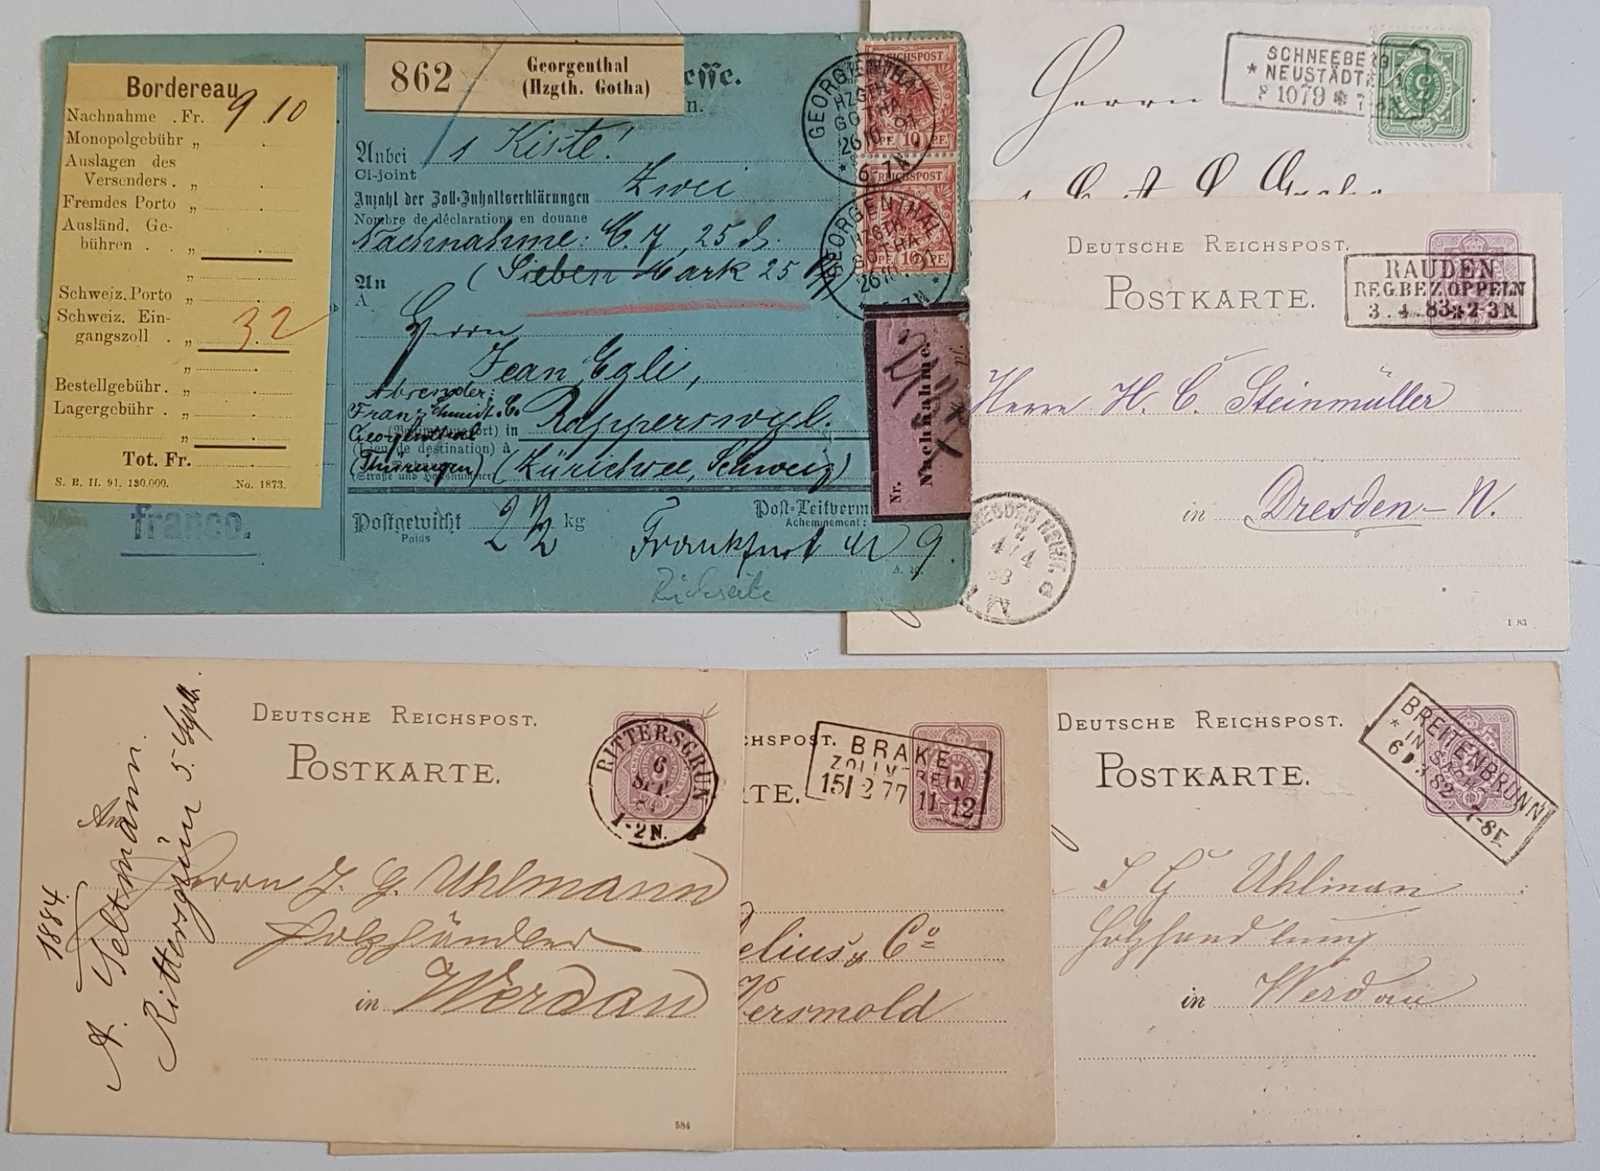 Bordereau
Nachnahme . Fr. 9.10
Monopolgebühr „
Auslagen des
Versenders . „
Fremdes Porto „
Ausländ. Ge-
bühren . „
Schweiz. Porto „
Schweiz. Ein-
gangszoll . „ 3.2
„
Bestellgebühr. „
Lagergebühr . „
„
Tot. Fr.
S. B. II. 91. 130.000. No. 1873.
franco.
862
Georgenthal
(Hzgth. Gotha)
Anbei 1 Kiste!
Ci-joint
Anzahl der Zoll-Inhaltserklärungen Zwei
Nombre de déclarations en douane
Nachnahme: M. 7, 25 d.
(Sieben Mark 25 )
An
A
Herrn
Jean Egli,
Absender:
Franz Schmidt & C.
Georgenthal
(Thüringen)
in Rapperswyl.
(Lieu de destination) à
(Zürichsee, Schweiz)
Postgewicht 2 1/2 kg
Poids
Post-Leitverm
Acheminement:
Frankfurt M 9.
Rückseite
REICHSPOST
10 PF. 10
GEORGENTHAL
HZGTH.
GOTHA
26 10 91
6-7N
REICHSPOST
10 PF. 10
GEORGENTHAL
HZGTH.
GOTHA
Nr. Nachnahme.
SCHNEEBERG
* NEUSTÄDTEL
Herrn
DEUTSCHE REICHSPOST.
POSTKARTE.
RAUDEN
REG.BEZ.OPPELN
3. 4. 83 * 2-3N
Herrn H. C. Steinmüller
in Dresden-N.
I 83
DEUTSCHE REICHSPOST.
POSTKARTE.
RITTERSGRÜN
6
SEP.
84
1-2N.
An
Herrn J. G. Uhlmann
Holzhändler
in Werdau
1884.
A. Seltmann.
Rittersgrün 5. Septb.
584
CHSPOST.
RTE.
BRAKE
ZOLLVEREIN
15 2 77 11-12
Delius & Co
Versmold
DEUTSCHE REICHSPOST.
POSTKARTE.
BREITENBRUNN
* IN
82 7-8
J G Uhlman
Holzhandlung
in Werdau